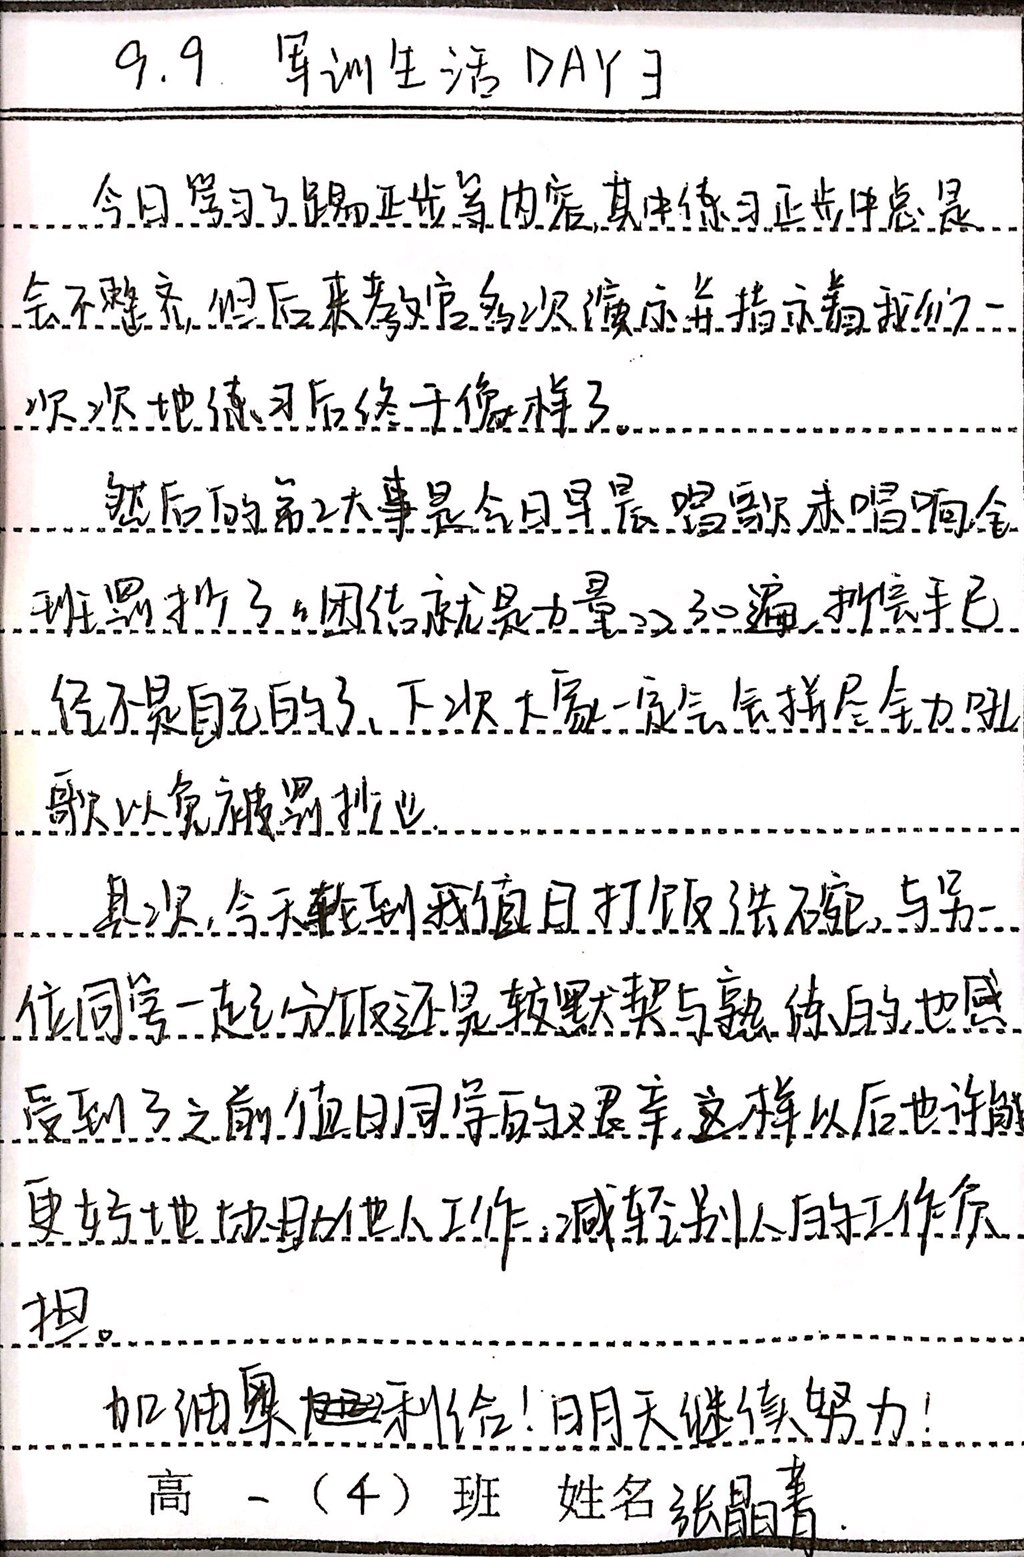 9.9 军训生活DAY3
今日学习了踢正步等内容,其中练习正步中总是
会不整齐,但后来教官多次演示并指示着我们一
次次地练习后终于像样了。
然后的第2大事是今日早晨唱歌未唱响全
班罚抄了《团结就是力量》30遍,抄完手已
经不是自己的了、下次大家一定会会拼尽全力吼
歌以免被罚抄也.
其次,今天轮到我值日打饭洗碗,与另一
位同学一起分饭还是较默契与熟练的,也感
受到了之前值日同学的艰辛,这样以后也许能
更好地帮助他人工作,减轻别人的工作负
担。
加油奥利给!明天继续努力!
高一(4)班 姓名张晶菁.